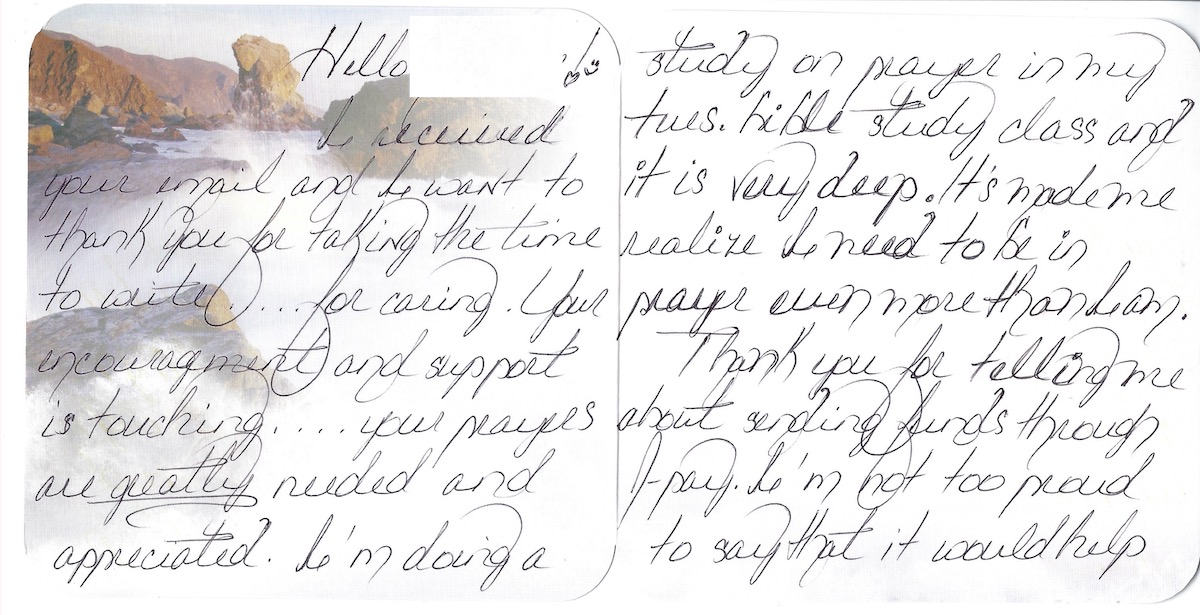 Hello
I received
your email and I want to
thank you for taking the time
to write.... for caring. Your
encouragment and support
is touching.... your prayers
are greatly needed and
appreciated. I'm doing a
study on prayer in my
tues. bible study class and
it is very deep. It's made me
realize I need to be in
prayer even more than I am.
Thank you for telling me
about sending funds through
J-pay. I'm not too proud
to say that it would help